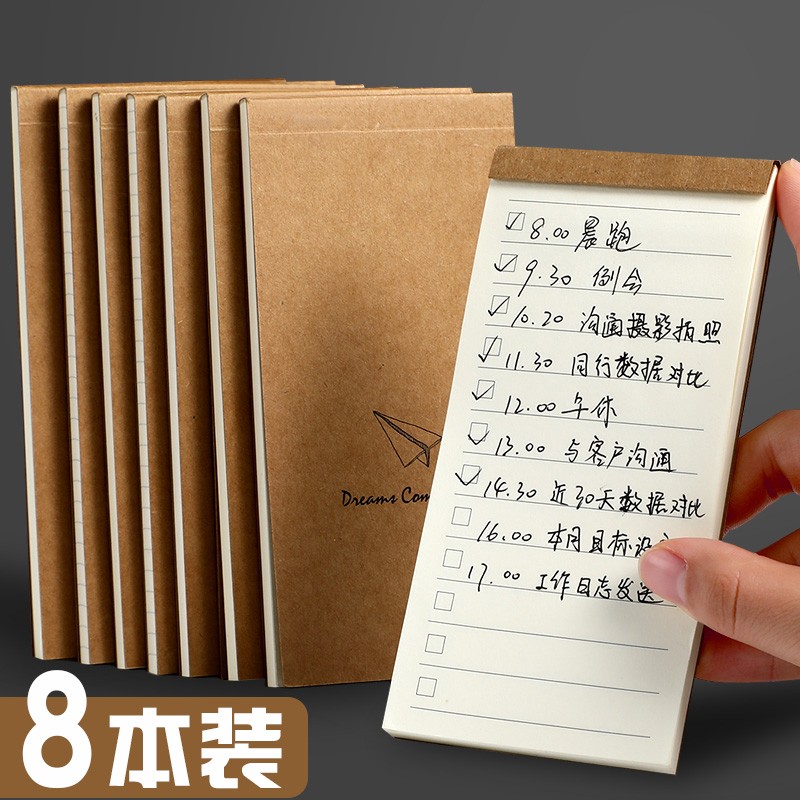 8.00 晨跑
9.30 例会
10.20 沟通摄影拍照
11.30 同行数据对比
12.00 午休
13.00 与客户沟通
14.30 近30天数据对比
16.00 本月目标设
17.00 工作日志发送
Dreams Com
8本装